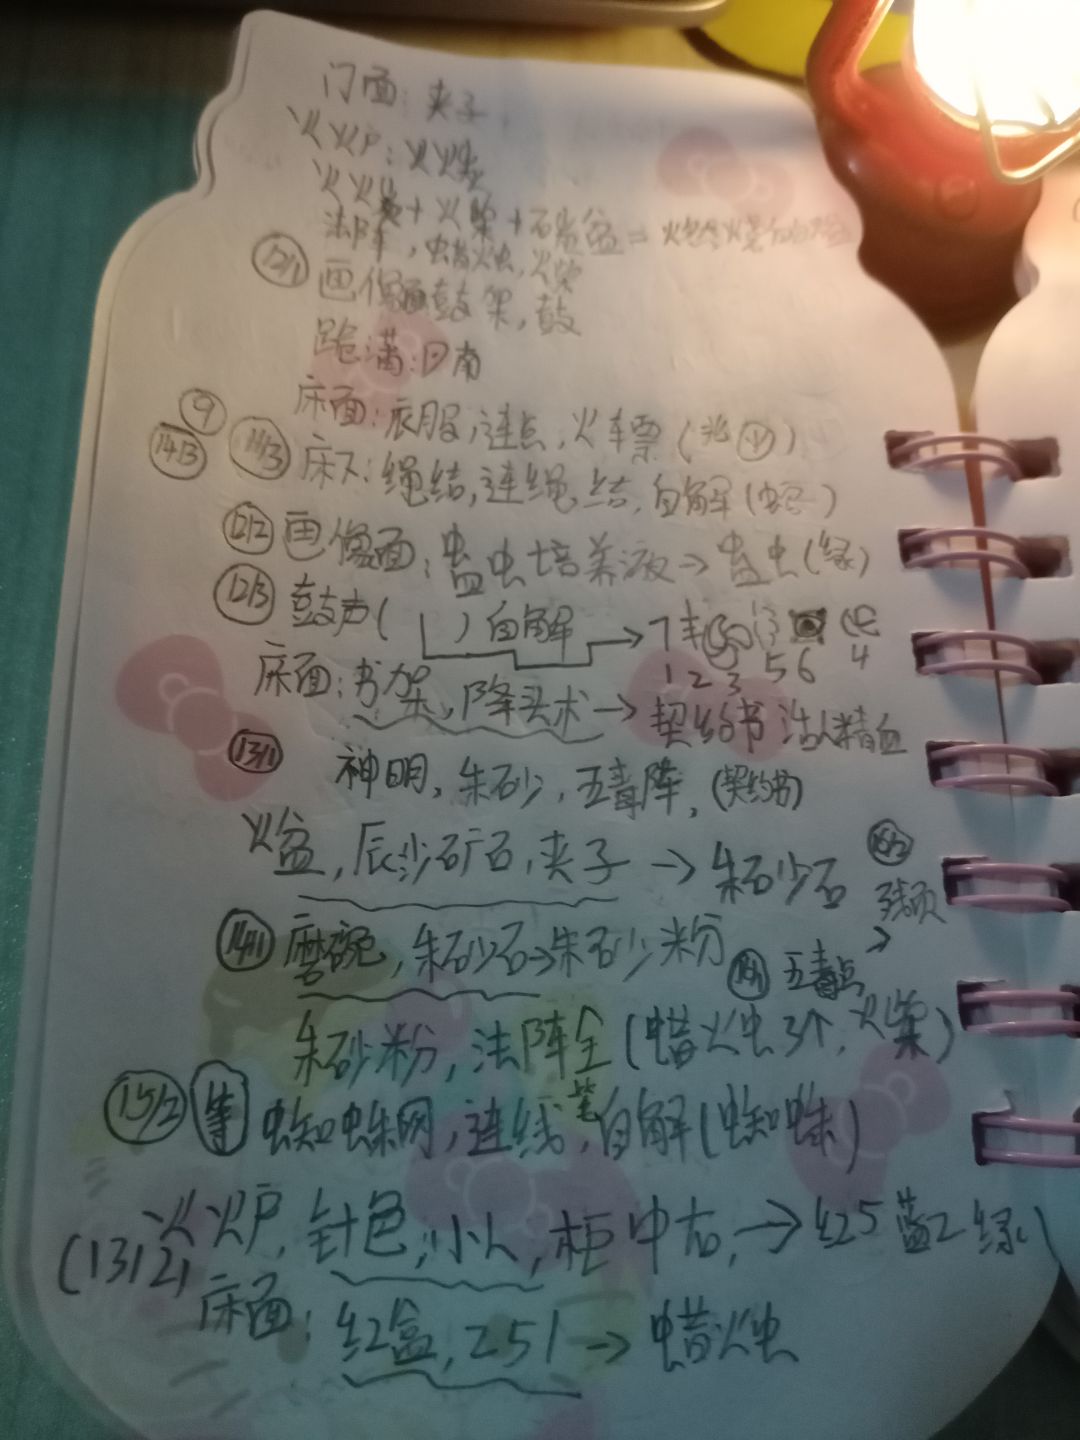 门面：夹子
火炉：火炭
火炭+火柴+石炭盆=
法阵，蜡烛，火柴
(12/1) 画像面鼓架，鼓
床面：衣服，连点，火车票
(9)
(14/3) (11/3) 床下：绳结，连绳，结，自解(蛇)
(12/2) 画像面：蛊虫培养液→蛊虫(绿)
(12/3) 鼓声( )自解→7
1 2 3 5 6 4
床面：书架，降头术→契约书 活人精血
(13/1) 神明，朱砂，五毒阵，(契约书)
火盆，辰沙矿石，夹子→朱砂石
残页
(14/1) 磨碗，朱砂石→朱砂粉
五毒点→
朱砂粉，法阵全(蜡烛3个，火柴)
(15/2) 等 蜘蛛网，连线笔，自解(蜘蛛)
(13/2) 火炉，针包，小人，柜中右，→红5 蓝2 绿1
床面：红盒，251→蜡烛